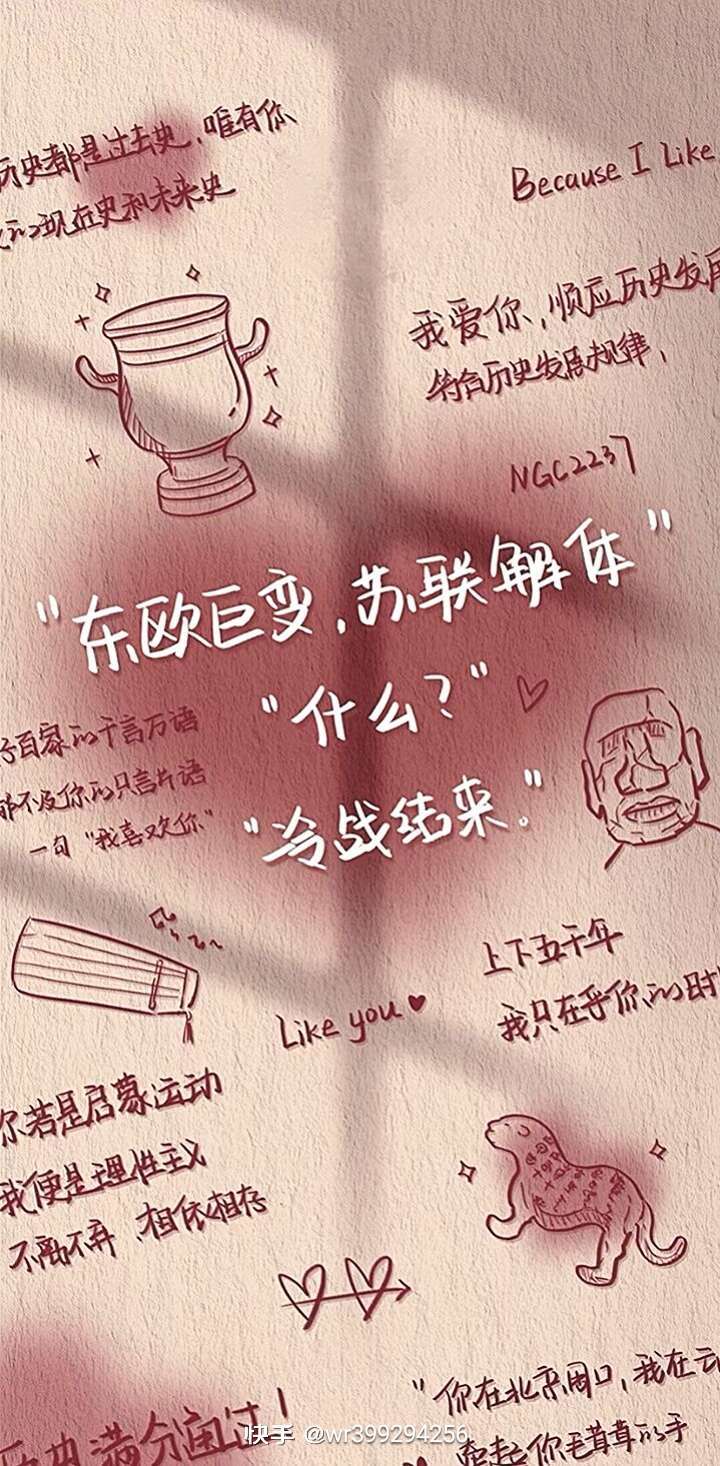 历史都是过去史，唯有你
我的现在史和未来史
Because I Like
我爱你，顺应历史发展
符合历史发展规律，
NGC2237
"东欧巨变，苏联解体"
"什么？"
"冷战结束。"
子百家的千言万语
都不及你的只言片语
一句"我喜欢你"
上下五千年
我只在乎你的时
Like you
你若是启蒙运动
我便是理性主义
不离不弃、相依相存
"你在北京周口，我在云
牵起你毛茸茸的手
历史满分通过！
快手 @wr399294256